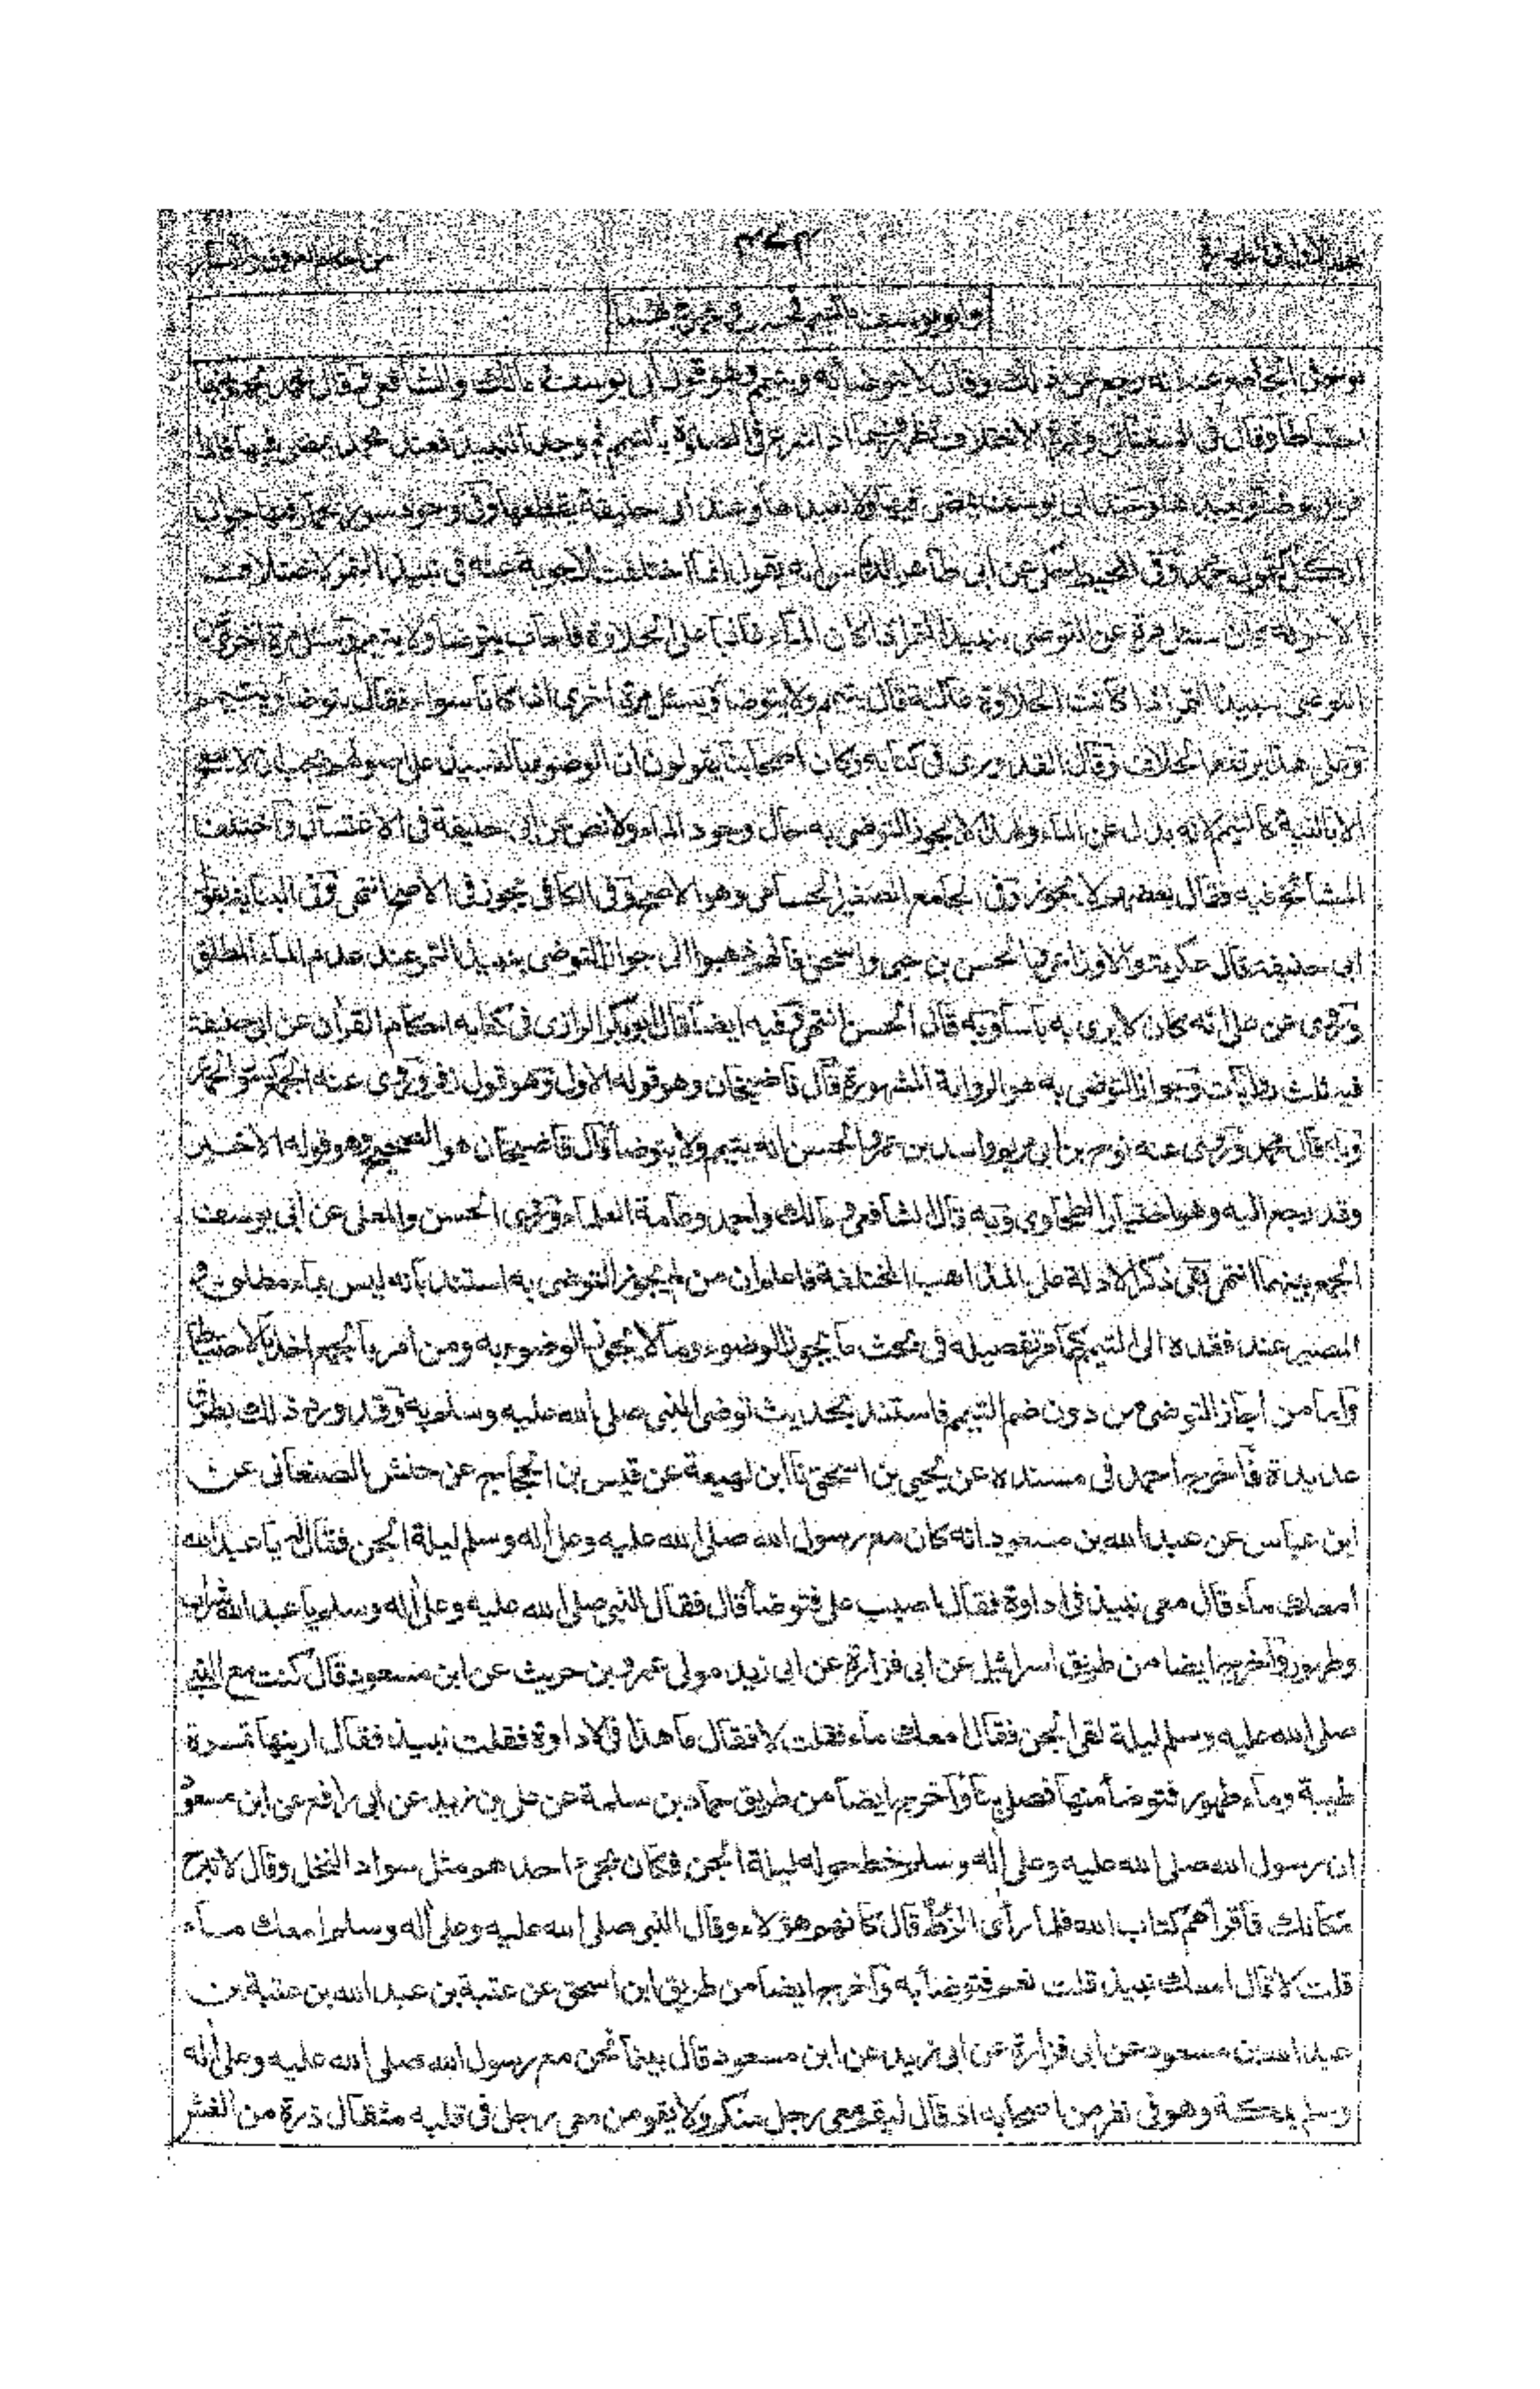 ٤٧٣
نوح بن ابي مريم عنه انه رجع عن ذلك وقال لا يتوضأ به ويتيمم وهو قول ابي يوسف ومالك والشافعي وقال محمد يجمع بينهما
وقال في وثمرة الاختلاف تظهر فيما اذا شرع في الصلوة بالتيمم ثم وجد النبيذ فعند محمد يمضي فيها فاذا
فرغ يتوضأ ويعيدها وعند ابي يوسف يمضي فيها ولا يعيدها وعند ابي حنيفة يقطعها وفي وجود سور حمار فيها جواب
الكل كجواب محمد وفي المحيط عن ابي طاهر الدباس انه يقول انما اختلفت الاجوبة عنه في نبيذ التمر لاختلاف
الاسولة سئل مرة عن التوضي بنبيذ التمر اذا كان الماء غالبا على الحلاوة فاجاب يتوضأ ولا يتيمم وسئل مرة اخرى عن
التوضي بنبيذ التمر اذا كانت الحلاوة غالبة قال يتيمم ولا يتوضأ وسئل مرة اخرى اذا كانا سواء فقال يتوضأ ويتيمم
وعلى هذا يرتفع الخلاف وقال القدوري في كتابه وكان اصحابنا يقولون ان الوضوء بالنبيذ على اصولهم يجب ان لا يصح
الا بالنية كالتيمم لانه بدل عن الماء ولهذا لا يجوز التوضي به حال وجود الماء ولا نص عن ابي حنيفة في الاغتسال واختلف
المشائخ فيه فقال بعضهم لا يجوز وفي الجامع الصغير الحسامي وهو الاصح وفي الكافي يجوز في الاصح انتهى وفي البناية بقول
ابي حنيفة قال عكرمة والاوزاعي والحسن بن حي واسحق فانهم ذهبوا الى جواز التوضي بنبيذ التمر عند عدم الماء المطلق
وروي عن علي انه كان لا يرى به باسا وبه قال الحسن انتهى وفيه ايضا قال ابو بكر الرازي في كتابه احكام القران عن ابي حنيفة
فيه ثلث روايات وجواز التوضي به هو الرواية المشهورة قال قاضيخان وهو قوله الاول وهو قول زفر وروي عنه الجمع كسور الحمار
وبه قال محمد وروى عنه نوح بن ابي مريم واسد بن عمر والحسن انه يتيمم ولا يتوضأ قال قاضيخان هو الصحيح وهو قوله الاخير
وقد رجع اليه وهو اختيار الطحاوي وبه قال الشافعي ومالك واحمد وعامة العلماء وروى الحسن والمعلى عن ابي يوسف
الجمع بينهما انتهى بقي ذكر الادلة على المذاهب المختلفة فاعلم ان من لم يجوز التوضي به استند بانه ليس بماء مطلق و
المصير عند فقده الى التيمم كما مر تفصيله في بحث ما يجوز به الوضوء وما لا يجوز به الوضوء ومن امر بالجمع اخذ بالاحتياط
وايما من اجاز التوضي من دون ضم التيمم فاستند بحديث توضي النبي صلى الله عليه وسلم به وقد ورد ذلك بطرق
عديدة فاخرج احمد في مسنده عن يحيى بن اسحق نا ابن لهيعة عن قيس بن الحجاج عن حنش الصنعاني عن
ابن عباس عن عبد الله بن مسعود انه كان مع رسول الله صلى الله عليه وعلى آله وسلم ليلة الجن فقال له يا عبد الله
امعك ماء قال معي نبيذ في اداوة فقال اصبب علي فتوضأ قال فقال النبي صلى الله عليه وعلى آله وسلم يا عبد الله شراب
وطهور وأخرج ايضا من طريق اسرائيل عن ابي فزارة عن ابي زيد مولى عمرو بن حريث عن ابن مسعود قال كنت مع النبي
صلى الله عليه وسلم ليلة لقي الجن فقال امعك ماء فقلت لا فقال ما هذا في الاداوة فقلت نبيذ فقال ارنيها تمرة
طيبة وماء طهور فتوضأ منها فصلى بنا وأخرج ايضا من طريق حماد بن سلمة عن علي بن زيد عن ابي رافع عن ابن مسعود
ان رسول الله صلى الله عليه وعلى آله وسلم خط حوله ليلة الجن فكان يجئ احدهم مثل سواد النخل وقال لا تبرح
مكانك فاقرأهم كتاب الله فلما رأى الزُّطَّ قال كانهم هؤلاء وقال النبي صلى الله عليه وعلى آله وسلم امعك ماء
قلت لا قال امعك نبيذ قلت نعم فتوضأ به وأخرج ايضا من طريق ابن اسحق عن عتبة بن عبد الله بن عتبة بن
عبد الله بن مسعود عن ابي فزارة عن ابي زيد عن ابن مسعود قال بينا نحن مع رسول الله صلى الله عليه وعلى آله
وسلم بمكة وهو في نفر من اصحابه اذ قال ليقم معي رجل منكم ولا يقومن معي رجل في قلبه مثقال ذرة من الغش